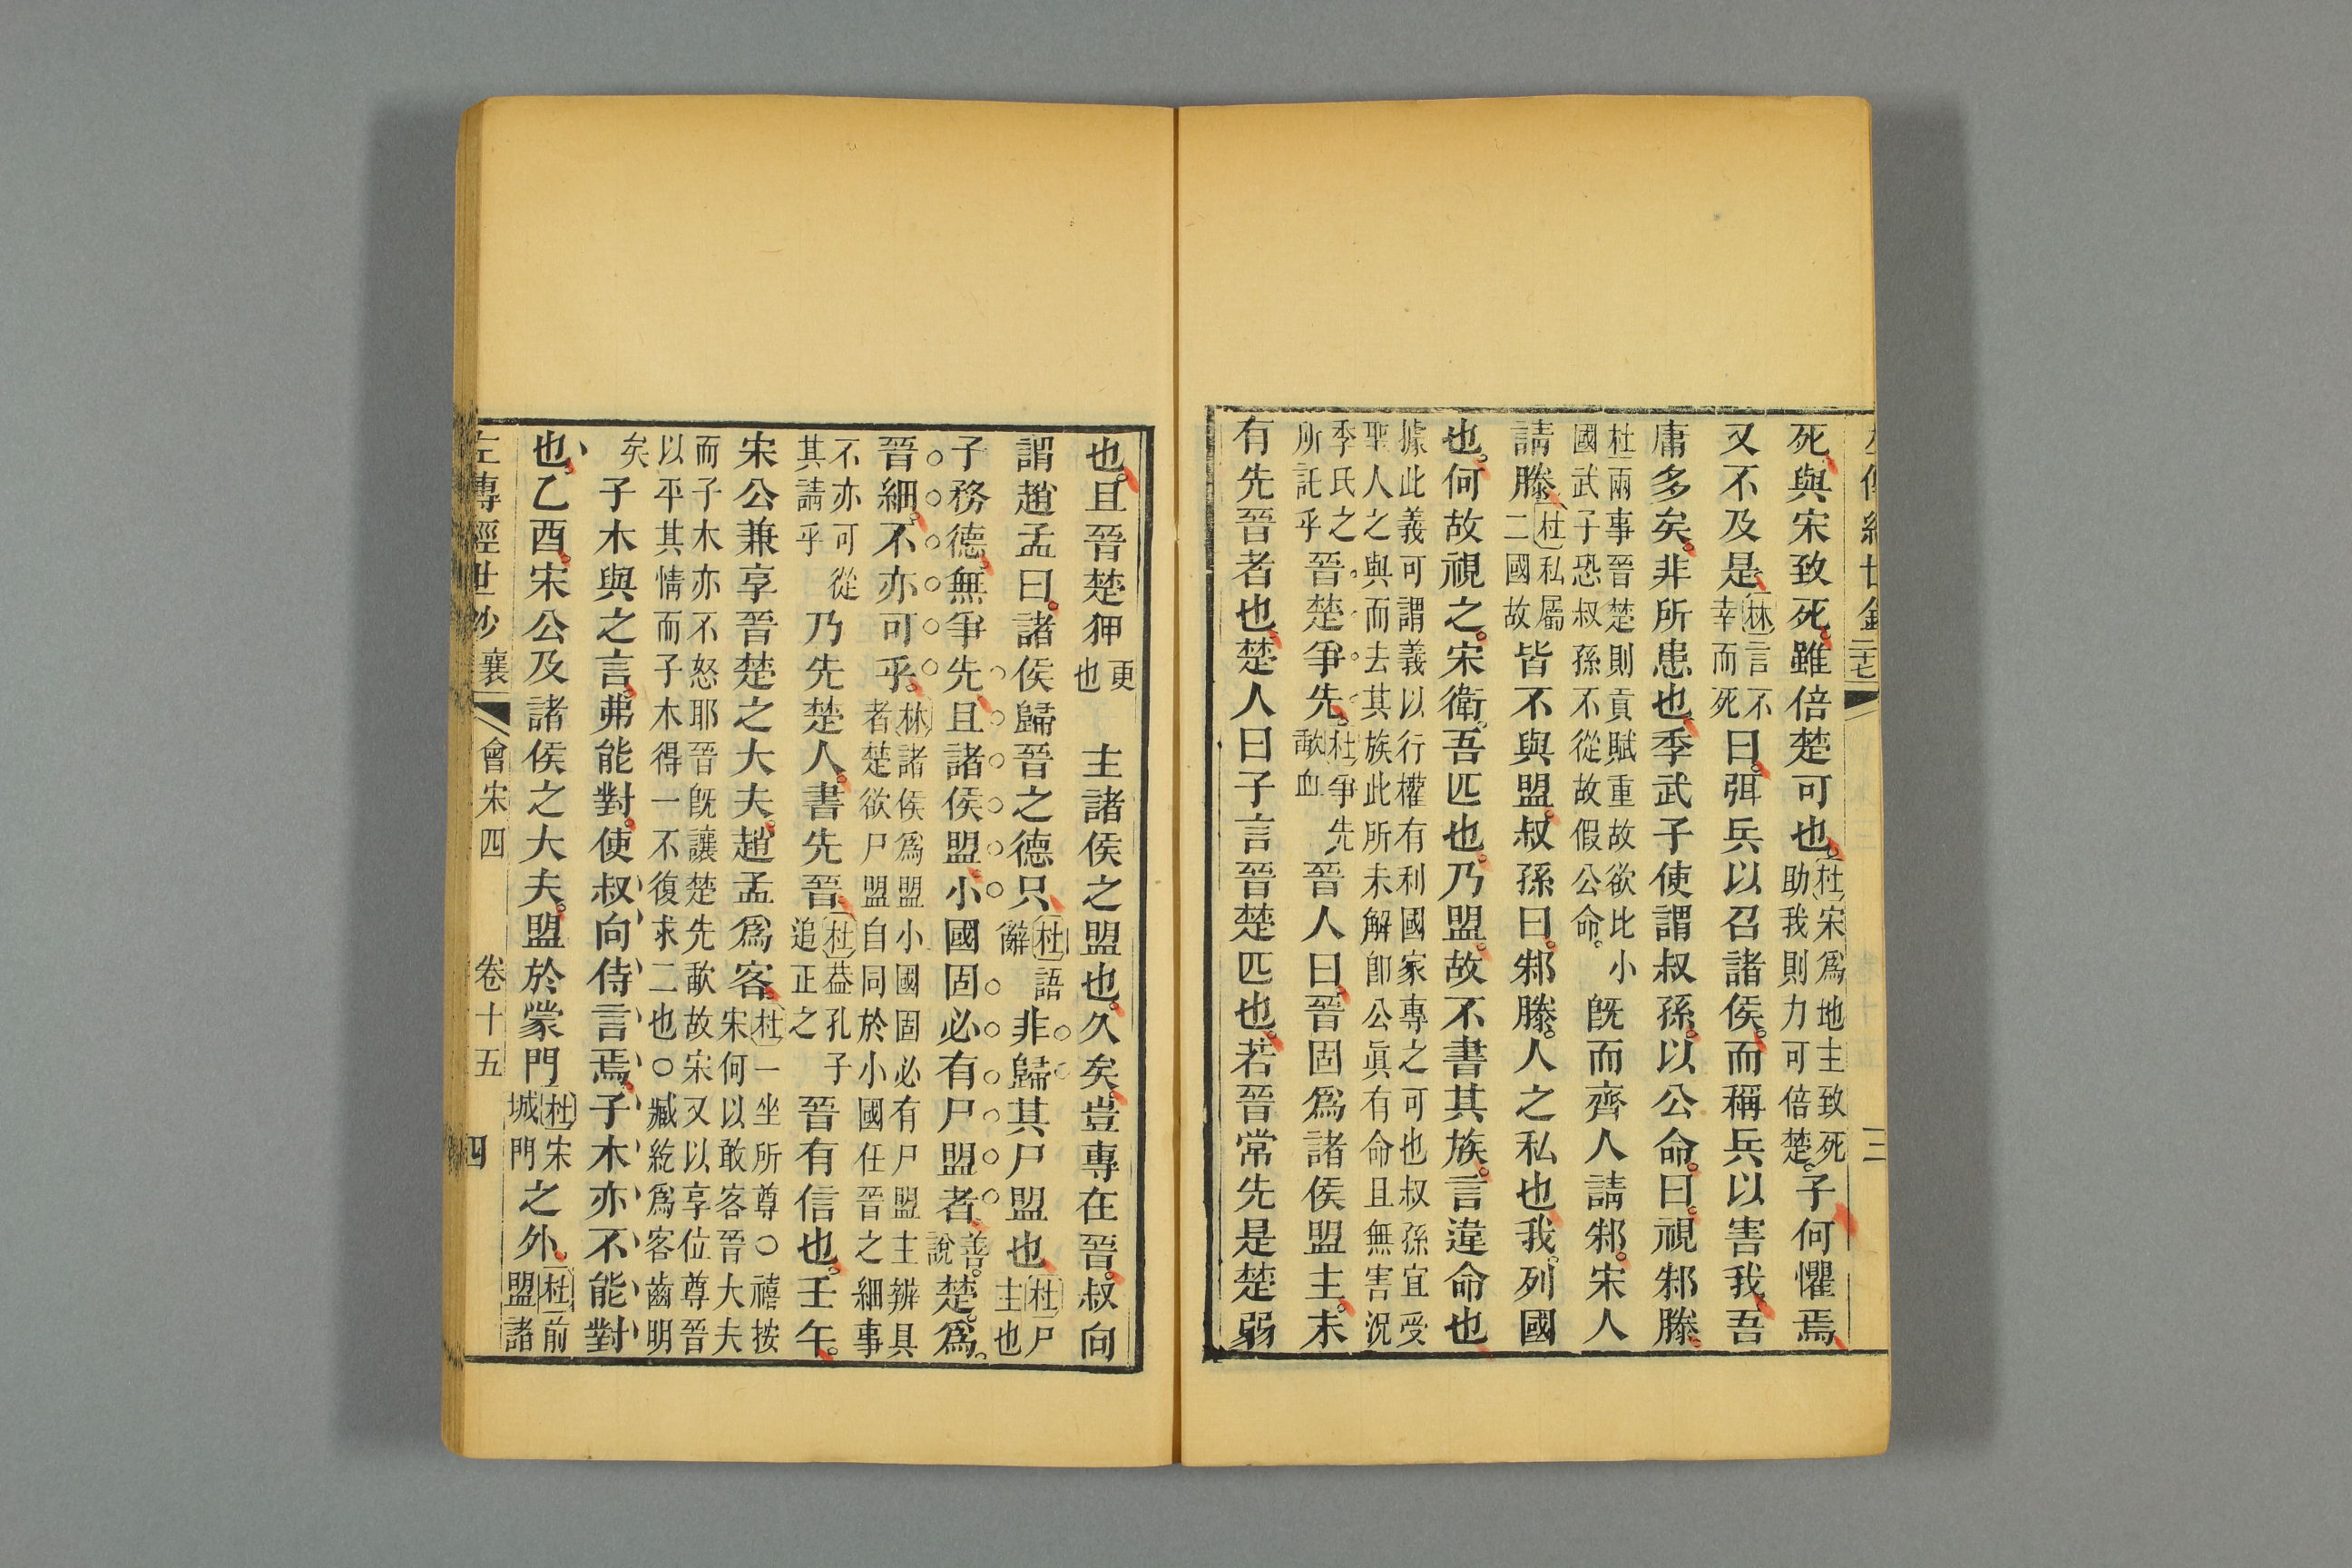 死與宋致死雖倍楚可也杜宋爲地主致死助我則力可倍楚子何懼焉
又不及是林言不幸而死曰弭兵以召諸侯而稱兵以害我吾
庸多矣非所患也季武子使謂叔孫以公命曰視邾滕
杜兩事晉楚則貢賦重故欲比小國武子恐叔孫不從故假公命既而齊人請邾宋人
請滕杜私屬二國故皆不與盟叔孫曰邾滕人之私也我列國
也何故視之宋衛吾匹也乃盟故不書其族言違命也
據此義可謂義以行權有利國家專之可也叔孫宜受聖人之與而去其族此所未解卽公眞有命且無害況
季氏之所託乎晉楚爭先杜爭先歃血晉人曰晉固爲諸侯盟主未
有先晉者也楚人曰子言晉楚匹也若晉常先是楚弱
三
也且晉楚狎更也主諸侯之盟也久矣豈專在晉叔向
謂趙孟曰諸侯歸晉之德只杜語辭非歸其尸盟也杜尸主也
子務德無爭先且諸侯盟小國固必有尸盟者善說楚爲
晉細不亦可乎林諸侯爲盟小國固必有尸盟主辨具者楚欲尸盟自同於小國任晉之細事
不亦可從其請乎乃先楚人書先晉杜蓋孔子追正之晉有信也壬午
宋公兼享晉楚之大夫趙孟爲客杜一坐所尊○禧按宋何以敢客晉大夫
而子木亦不怒耶晉既讓楚先歃故宋又以享位尊晉以平其情而子木得一不復求二也○臧紇爲客齒明
矣子木與之言弗能對使叔向侍言焉子木亦不能對
也乙酉宋公及諸侯之大夫盟於蒙門杜宋城門之外杜前盟諸
左傳經世鈔 襄 會宋四 卷十五 四